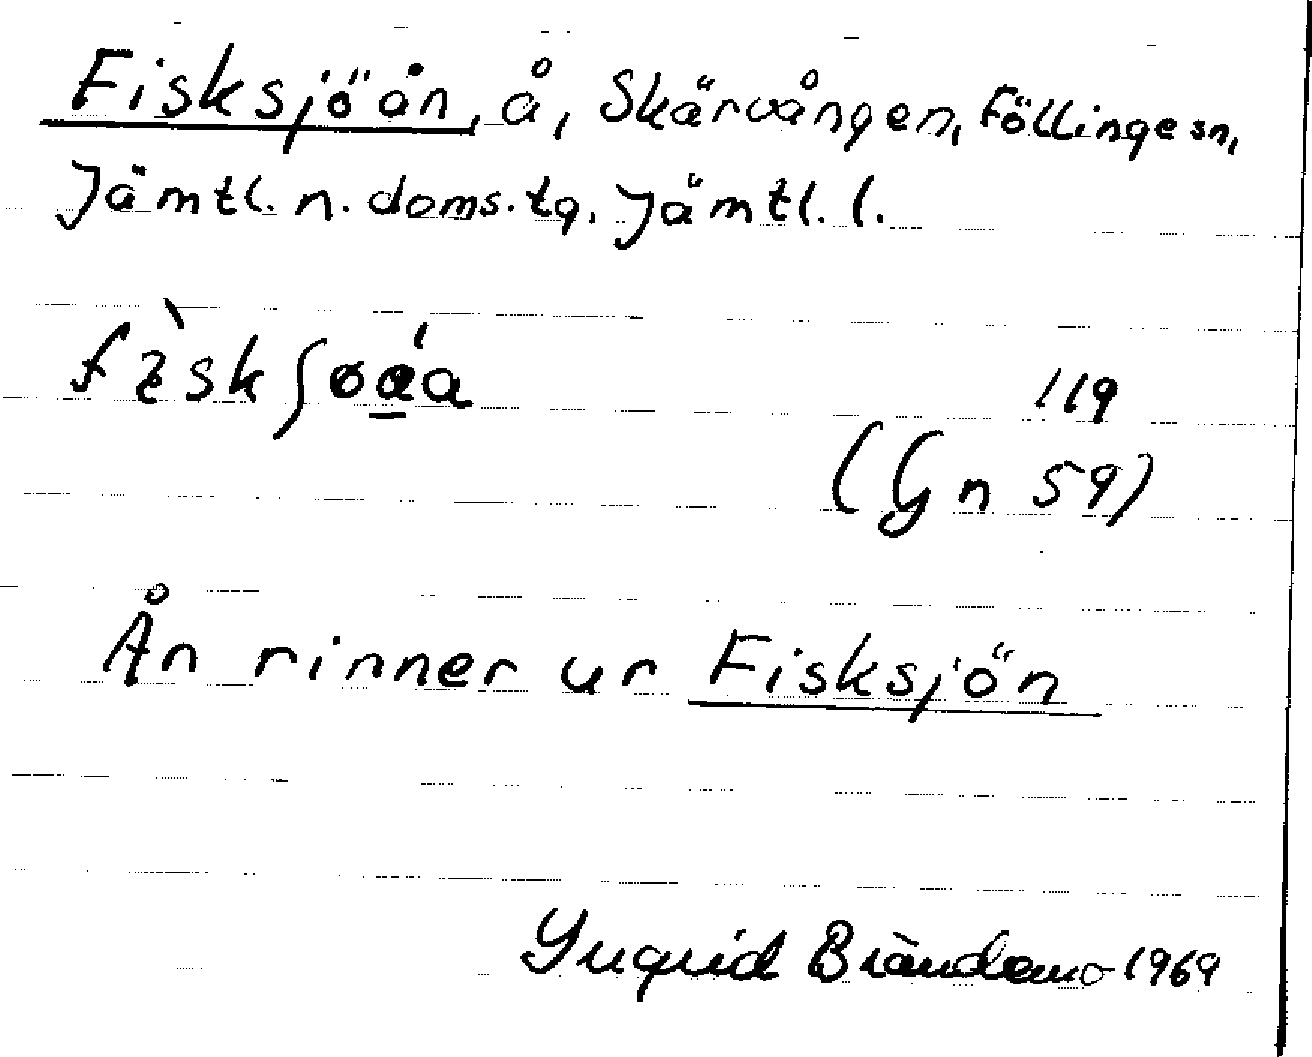 Fisksjöån, å, Skärvången, Föllinge sn,
Jämtl. n. doms. tg. Jämtl. l.
119
(Gn 59)
Ån rinner ur Fisksjön
Ingrid Brändemo 1969